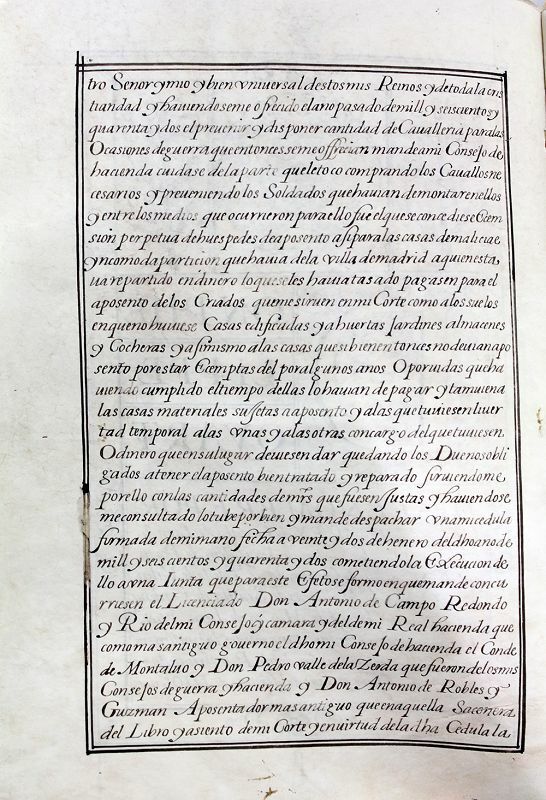 tro Senor y mio y bien vniversal destos mis Reinos y de toda la cris
tiandad y haviendoseme ofrecido el ano pasado de mill y seiscientos y
quarenta y dos el prevenir y disponer cantidad de Cavalleria para las
Ocasiones de guerra que entonces seme offrecian mande a mi Consejo de
hacienda cuidase de la parte que le toco comprando los Cavallos ne
cesarios y preveniendo los Soldados que havian de montar en ellos
y entre los medios que ocurrieron para ello fue el que se concediese Ecem
sion perpetua de huespedes de aposento asi para las casas de malicia e
yncomoda particion que havia de la villa de madrid a quien esta
va repartido en dinero lo que se les havia tasado pagasen para el
aposento de los Criados que me sirven en mi Corte como a los suelos
en que no huviese Casas edificadas y a huertas Jardines almacenes
y Cocheras y asimismo a las casas que si bien entonces no devian apo
sento por estar Ecemptas del por algunos anos O por vidas que ha
viendo cumplido el tiempo dellas lo havian de pagar y tamviena
las casas materiales sujetas a aposento y a las que tuviesen liver
tad temporal a las vnas y a las otras con cargo del que tuviesen
O dinero que en su lugar deviesen dar quedando los Duenos obli
gados a tener el aposento bien tratado y reparado sirviendome
por ello con las cantidades de mrs que fuesen Justas y haviendose
me consultado lo tube por bien y mande despachar vna mi cedula
firmada de mi mano fecha a veinte y dos de henero del dho ano de
mill y seis cientos y quarenta y dos cometiendo la Execucion de
llo a vna Junta que para este Efeto se formo en que mande concu
rriesen el Licenciado Don Antonio de Campo Redondo
y Rio del mi Consejo y camara y del de mi Real hacienda que
como mas antiguo governo el dho mi Consejo de hacienda el Conde
de Montalvo y Don Pedro valle de la Zerda que fueron de los mis
Consejos de guerra y hacienda y Don Antonio de Robles y
Guzman Aposentador mas antiguo que en aquella Sacon era
del Libro y asiento de mi Corte y en virtud de la dha Cedula la